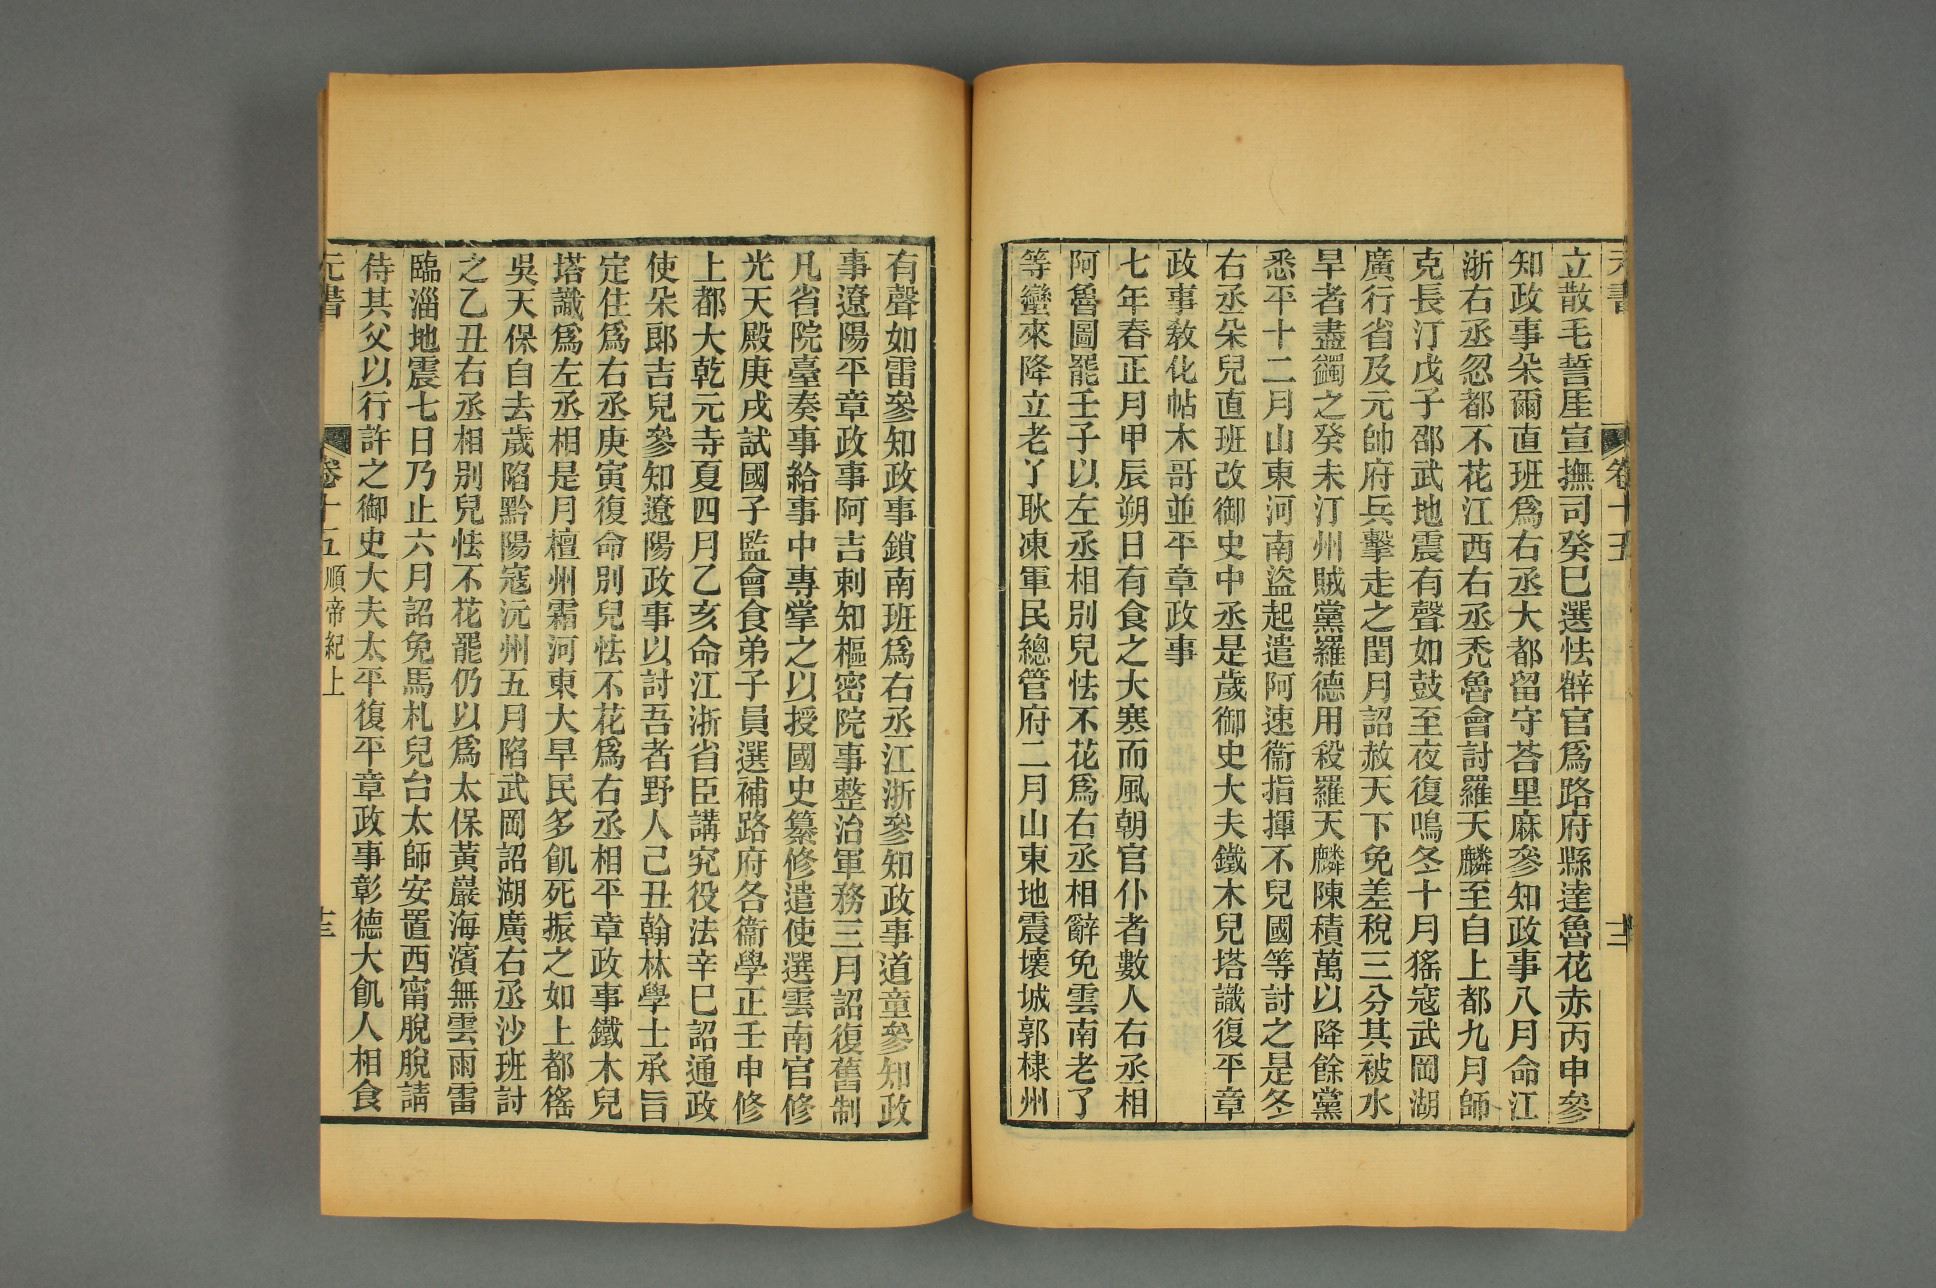 元書 卷十五 十二
立散毛誓厓宣撫司癸巳選怯薛官爲路府縣達魯花赤丙申參
知政事朵爾直班爲右丞大都留守荅里麻參知政事八月命江
浙右丞忽都不花江西右丞禿魯會討羅天麟至自上都九月師
克長汀戊子邵武地震有聲如鼓至夜復鳴冬十月猺寇武岡湖
廣行省及元帥府兵擊走之閏月詔赦天下免差稅三分其被水
旱者盡蠲之癸未汀州賊黨羅德用殺羅天麟陳積萬以降餘黨
悉平十二月山東河南盜起遣阿速衞指揮不兒國等討之是冬
右丞朵兒直班改御史中丞是歲御史大夫鐵木兒塔識復平章
政事教化帖木哥並平章政事
七年春正月甲辰朔日有食之大寒而風朝官仆者數人右丞相
阿魯圖罷壬子以左丞相別兒怯不花爲右丞相辭免雲南老了
等蠻來降立老丫耿凍軍民總管府二月山東地震壞城郭棣州
有聲如雷參知政事鎖南班爲右丞江浙參知政事道童參知政
事遼陽平章政事阿吉剌知樞密院事整治軍務三月詔復舊制
凡省院臺奏事給事中專掌之以授國史纂修遣使選雲南官修
光天殿庚戌試國子監會食弟子員選補路府各衞學正壬申修
上都大乾元寺夏四月乙亥命江浙省臣講究役法辛巳詔通政
使朵郎吉兒參知遼陽政事以討吾者野人己丑翰林學士承旨
定住爲右丞庚寅復命別兒怯不花爲右丞相平章政事鐵木兒
塔識爲左丞相是月檀州霜河東大旱民多飢死振之如上都徭
吳天保自去歲陷黔陽寇沅州五月陷武岡詔湖廣右丞沙班討
之乙丑右丞相別兒怯不花罷仍以爲太保黃巖海濱無雲雨雷
臨淄地震七日乃止六月詔免馬札兒台太師安置西甯脫脫請
侍其父以行許之御史大夫太平復平章政事彰德大飢人相食
元書 卷十五 順帝紀上 十三